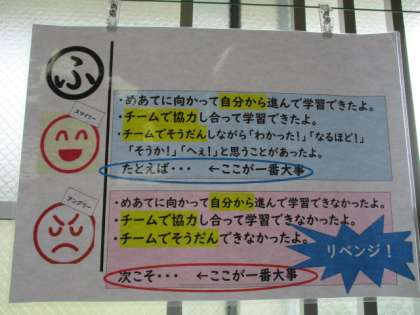 ふ
スマイリー
・めあてに向かって自分から進んで学習できたよ。
・チームで協力し合って学習できたよ。
・チームでそうだんしながら「わかった!」「なるほど!」
「そうか!」「へぇ!」と思うことがあったよ。
たとえば・・・ ←ここが一番大事
アングリー
・めあてに向かって自分から進んで学習できなかったよ。
・チームで協力し合って学習できなかったよ。
・チームでそうだんできなかったよ。
リベンジ!
次こそ・・・ ←ここが一番大事